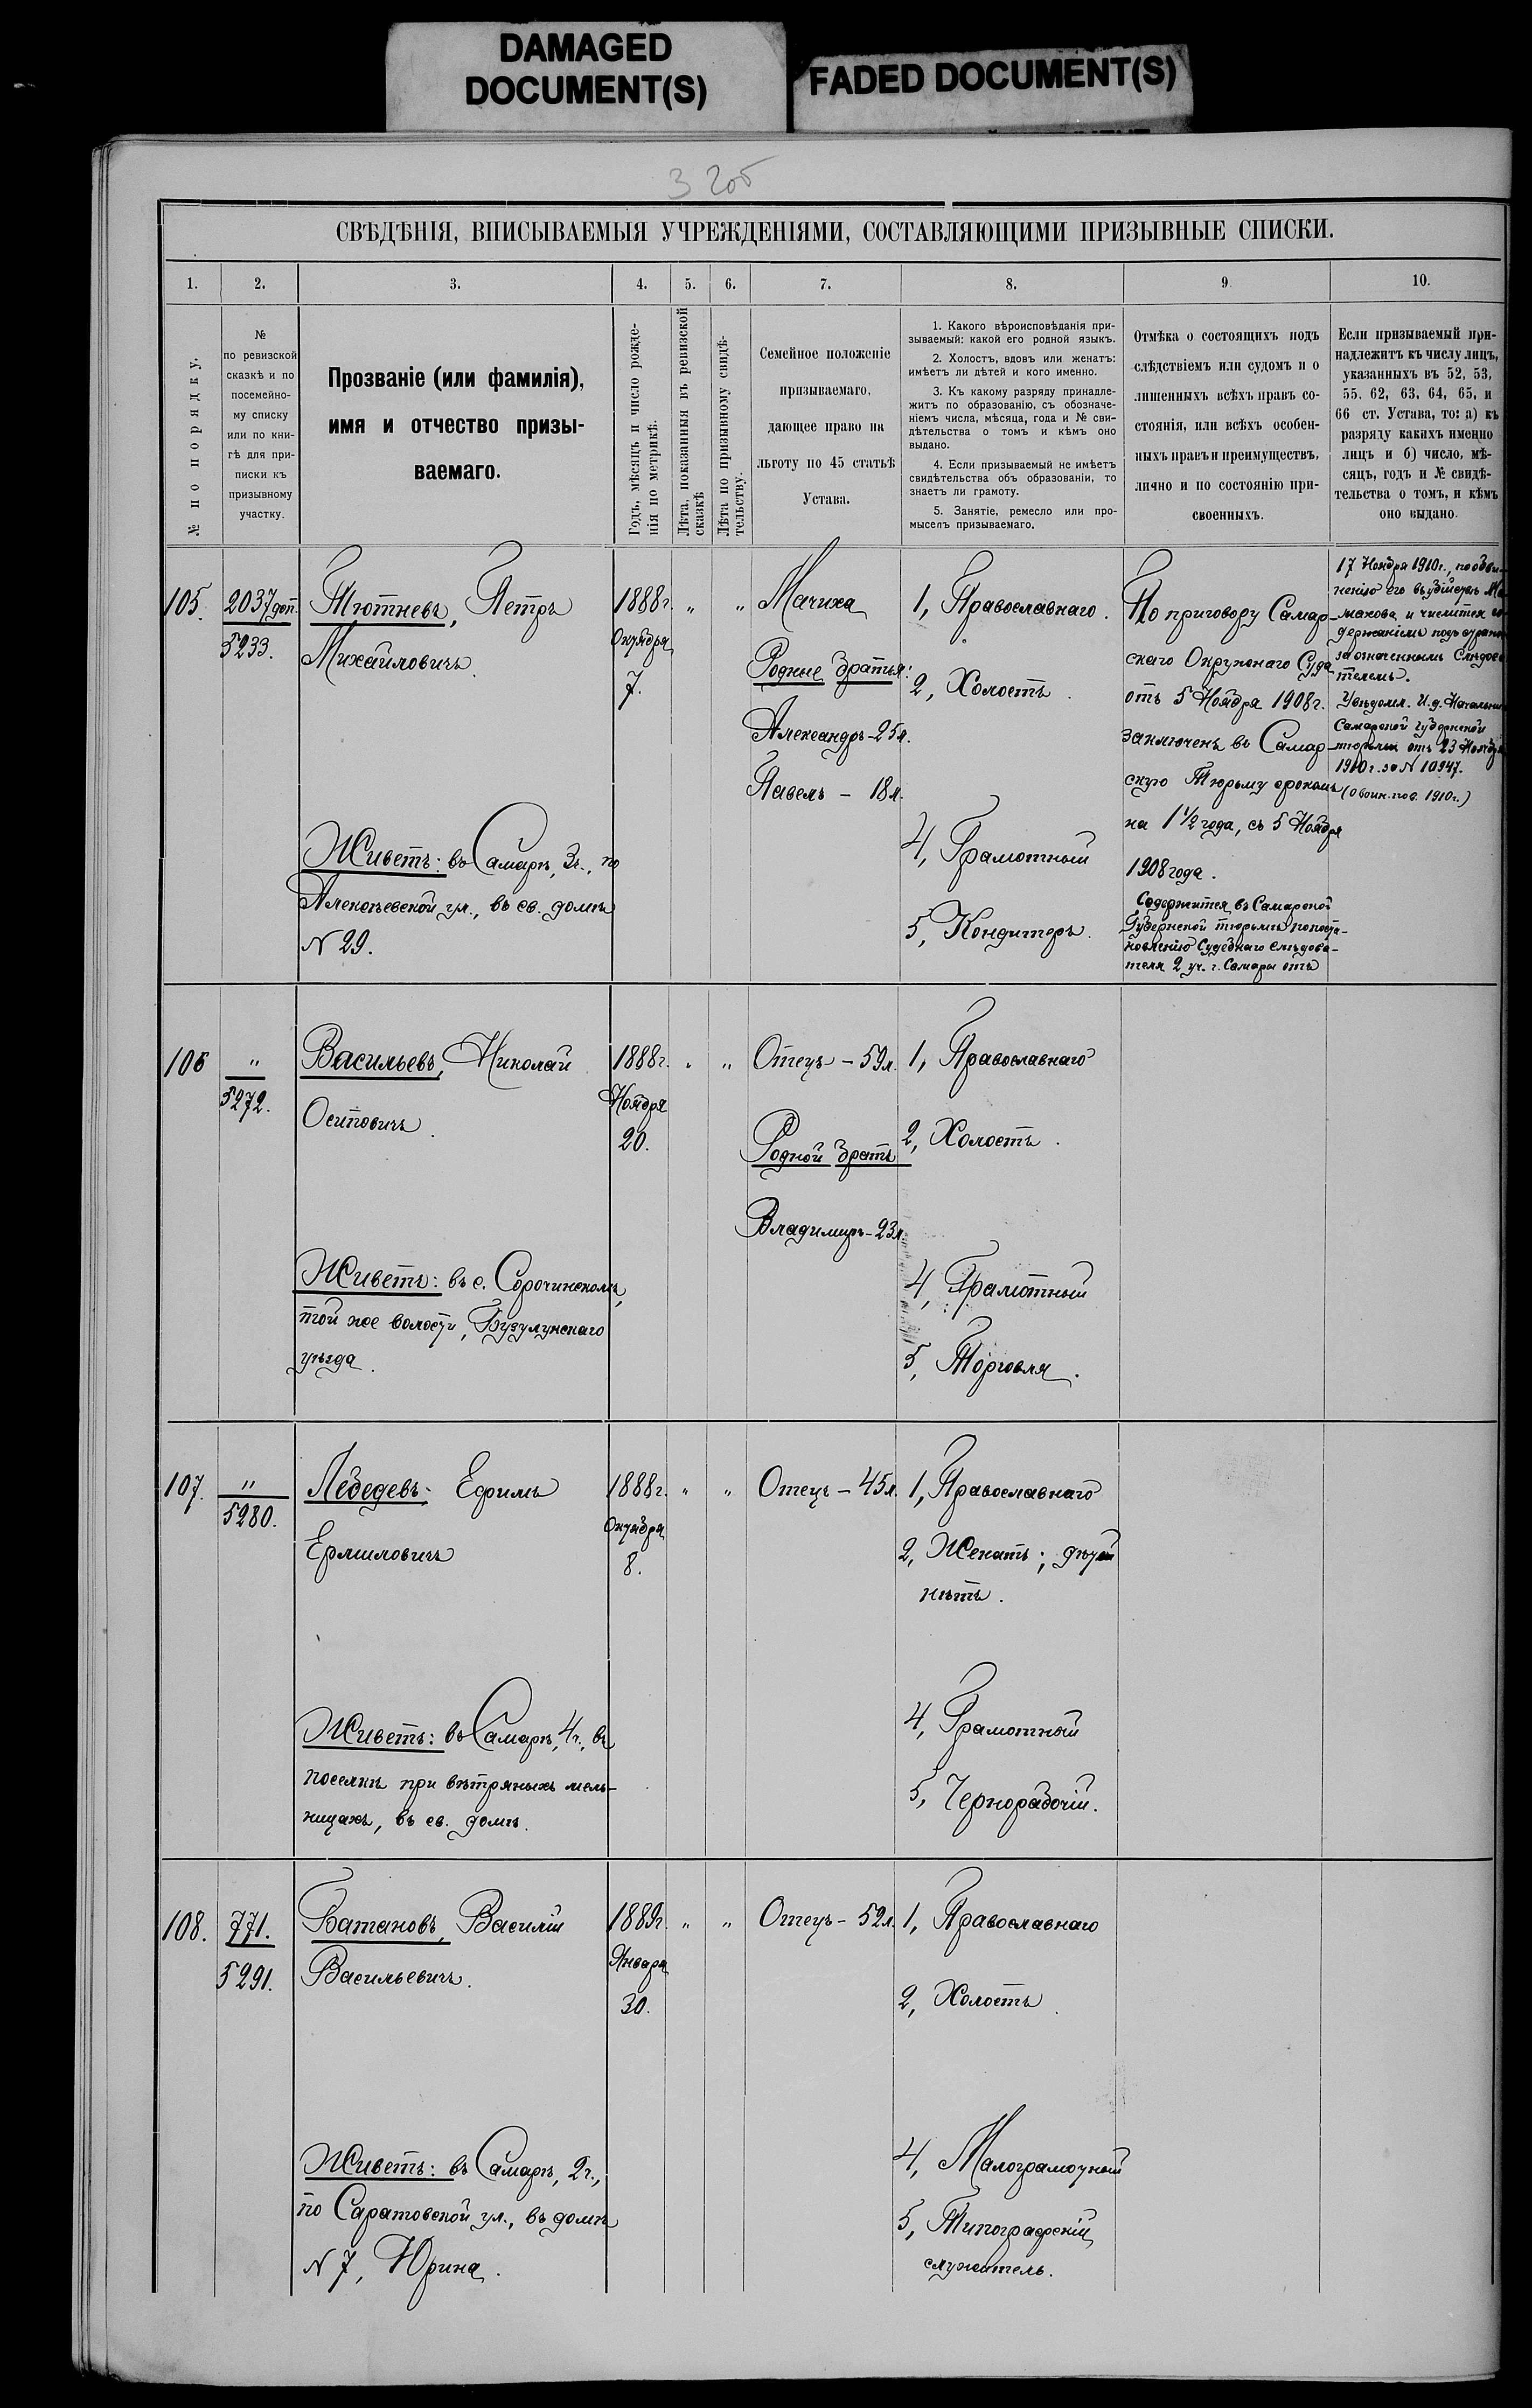 DAMAGED
DOCUMENT(S)
FADED DOCUMENT(S)
3 2об
СВѢДѢНІЯ, ВПИСЫВАЕМЫЯ УЧРЕЖДЕНІЯМИ, СОСТАВЛЯЮЩИМИ ПРИЗЫВНЫЕ СПИСКИ.
1.
2.
3.
4.
5.
6.
7.
8.
9
10.
№ по порядку.
№
по ревизской
сказкѣ и по
посемейно-
му списку
или по кни-
гѣ для при-
писки къ
призывному
участку.
Прозваніе (или фамилія),
имя и отчество призы-
ваемаго.
Годъ, мѣсяцъ и число рожде-
нія по метрикѣ.
Лѣта, показанныя въ ревизской
сказкѣ
Лѣта по призывному свидѣ-
тельству.
Семейное положеніе
призываемаго,
дающее право на
льготу по 45 статьѣ
Устава.
1. Какого вѣроисповѣданія при-
зываемый: какой его родной языкъ.
2. Холостъ, вдовъ или женатъ:
имѣетъ ли дѣтей и кого именно.
3. Къ какому разряду принадле-
житъ по образованію, съ обозначе-
ніемъ числа, мѣсяца, года и № сви-
дѣтельства о томъ и кѣмъ оно
выдано.
4. Если призываемый не имѣетъ
свидѣтельства объ образованіи, то
знаетъ ли грамоту.
5. Занятіе, ремесло или про-
мыселъ призываемаго.
Отмѣка о состоящихъ подъ
слѣдствіемъ или судомъ и о
лишенныхъ всѣхъ правъ со-
стоянія, или всѣхъ особен-
ныхъ правъ и преимуществъ,
лично и по состоянію при-
своенныхъ.
Если призываемый при-
надлежитъ къ числу лицъ,
указанныхъ въ 52, 53,
55, 62, 63, 64, 65, и
66 ст. Устава, то: а) къ
разряду какихъ именно
лицъ и б) число, мѣ-
сяцъ, годъ и № свидѣ-
тельства о томъ, и кѣмъ
оно выдано.
105.
2037 доп.
5233.
Тютневъ, Петръ
Михайловичъ
Живетъ: въ Самарѣ, 3ч., по
Алексѣевской ул., въ св. домѣ
N 29.
1888г.
Октября
7.
"
"
Мачиха
Родные братья:
Александръ – 25л.
Павелъ – 18л.
1, Православнаго.
2, Холостъ.
4, Грамотный
5, Кондитеръ.
По приговору Самар-
скаго Окружнаго Суда
отъ 5 Ноября 1908г.
заключенъ въ Самар-
скую Тюрьму срокомъ
на 1 1/2 года, съ 5 Ноября
1908 года.
Содержится въ Самарской
Губернской тюрьмѣ по поста-
новленію Судебнаго слѣдова-
теля 2 уч. г. Самары отъ
17 Ноября 1910г., по обви-
ненію его въ убійствѣ
макова и числится со-
держаніемъ подъ
за означеннымъ Слѣдова
телемъ.
Увѣдомл. И. д. Начальни
Самарской губернской
тюрьмы отъ 23 Ноября
1910г. за N 10947.
(о воин. пов. 1910г.)
106
"
5272.
Васильевъ, Николай
Осиповичъ.
Живетъ: въ с. Сорочинскомъ,
той же волости, Бузулукскаго
уѣзда.
1888г.
Ноября
20.
"
"
Отецъ – 59л.
Родной братъ
Владимиръ – 23л.
1, Православнаго
2, Холостъ.
4, Грамотный
5, Торговля.
107.
"
5280.
Лебедевъ Ефимъ
Ермиловичъ
Живетъ: въ Самарѣ, 4ч., въ
поселкѣ при вѣтряныхъ мель-
ницахъ, въ св. домѣ.
1888г.
Октября
8.
"
"
Отецъ – 45л.
1, Православнаго
2, Женатъ; дѣтей
нѣтъ.
4, Грамотный
5, Чернорабочій.
108.
771.
5291.
Батановъ, Василій
Васильевичъ.
Живетъ: въ Самарѣ, 2ч.,
по Саратовской ул., въ домѣ
N 7, Юрина.
1889г.
Января
30.
"
"
Отецъ – 52л.
1, Православнаго
2, Холостъ.
4, Малограмотный
5, Типографскій
служитель.